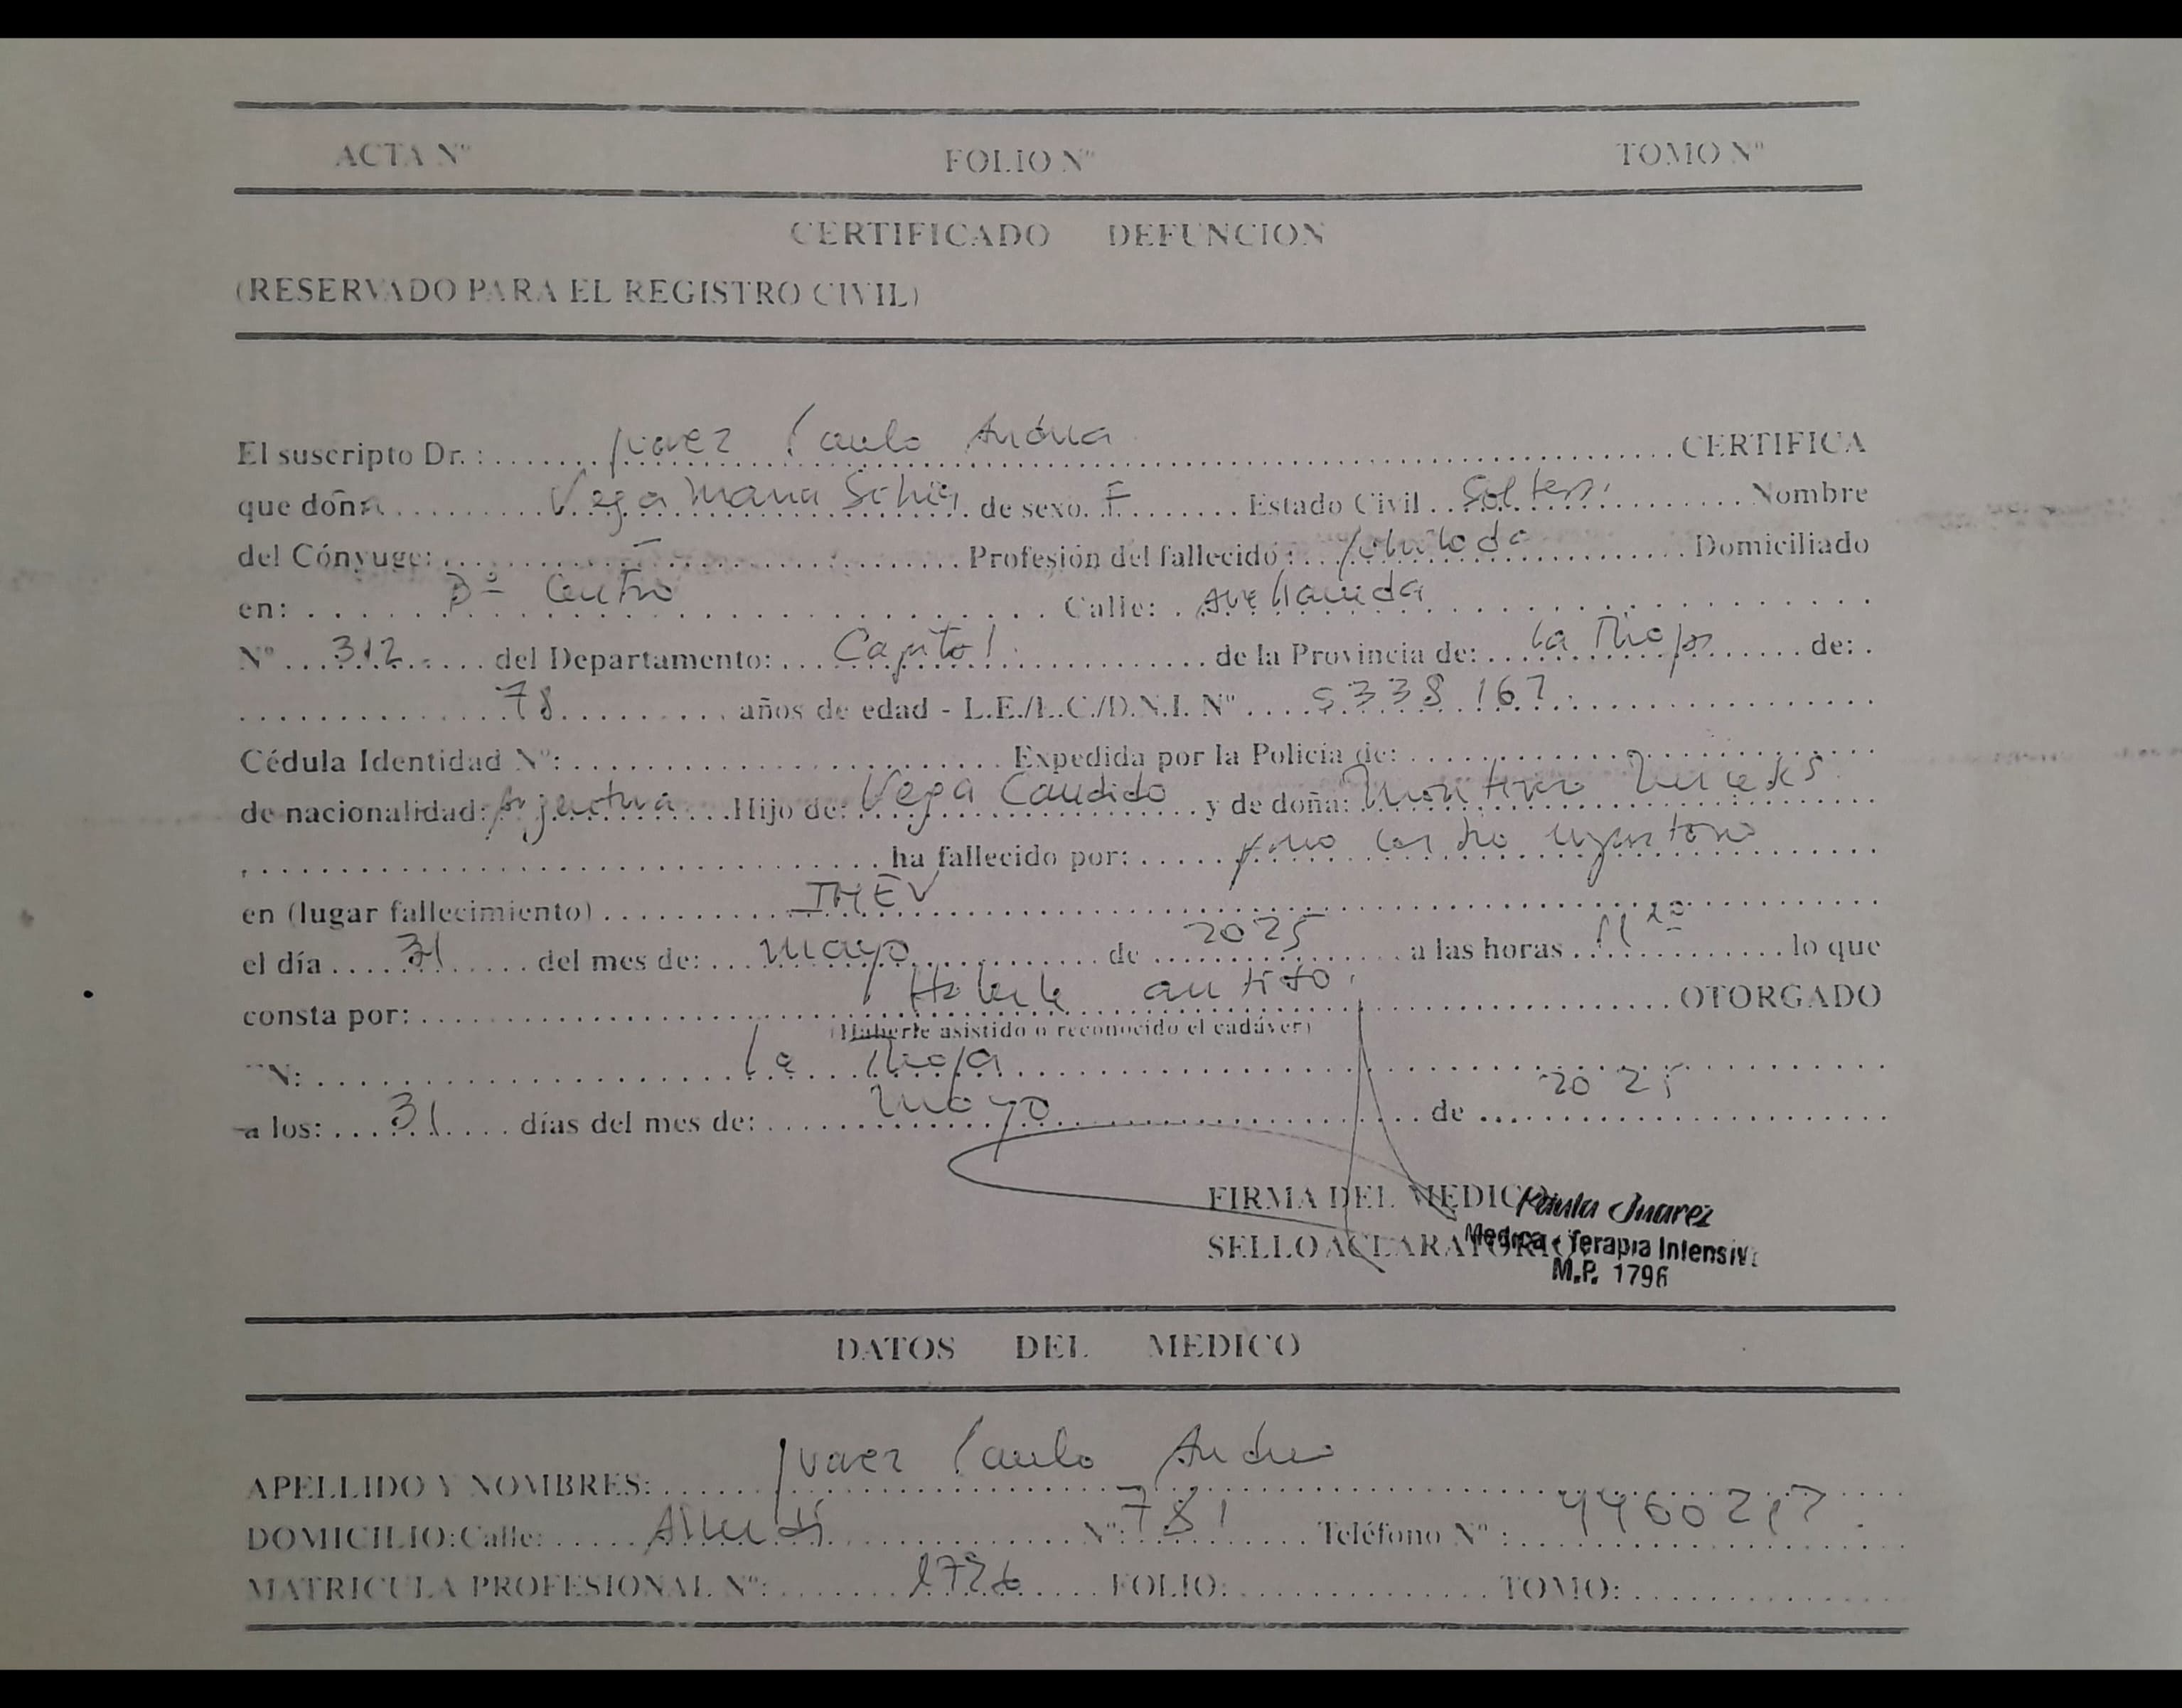 ACTA Nº FOLIO Nº TOMO Nº
CERTIFICADO DEFUNCION
(RESERVADO PARA EL REGISTRO CIVIL)
El suscripto Dr. : Juarez Paula Andrea CERTIFICA
que doña Vega Maria de sexo. F Estado Civil Soltera Nombre
del Cónyuge: – Profesión del fallecido : Jubilada Domiciliado
en: Bº Centro Calle: Avellaneda
Nº 312 del Departamento: Capital de la Provincia de: La Rioja de:
78 años de edad - L.E./L.C./D.N.I. Nº 5338167
Cédula Identidad Nº: Expedida por la Policía de:
de nacionalidad: Argentina Hijo de: Vega Candido y de doña: Mercedes
ha fallecido por: paro cardio
en (lugar fallecimiento) IMEV
el día 31 del mes de: mayo de 2025 a las horas lo que
consta por: Haberle OTORGADO
(Haberle asistido o reconocido el cadáver)
EN: La Rioja
a los: 31 días del mes de: Mayo de 2025
FIRMA DEL MEDICO Paula Juarez
SELLO ACLARATORIO Medica - Terapia Intensiva
M.P. 1796
DATOS DEL MEDICO
APELLIDO Y NOMBRES: Juarez Paula Andrea
DOMICILIO: Calle: Nº: 781 Teléfono Nº :
MATRICULA PROFESIONAL Nº: 1796 FOLIO: TOMO: